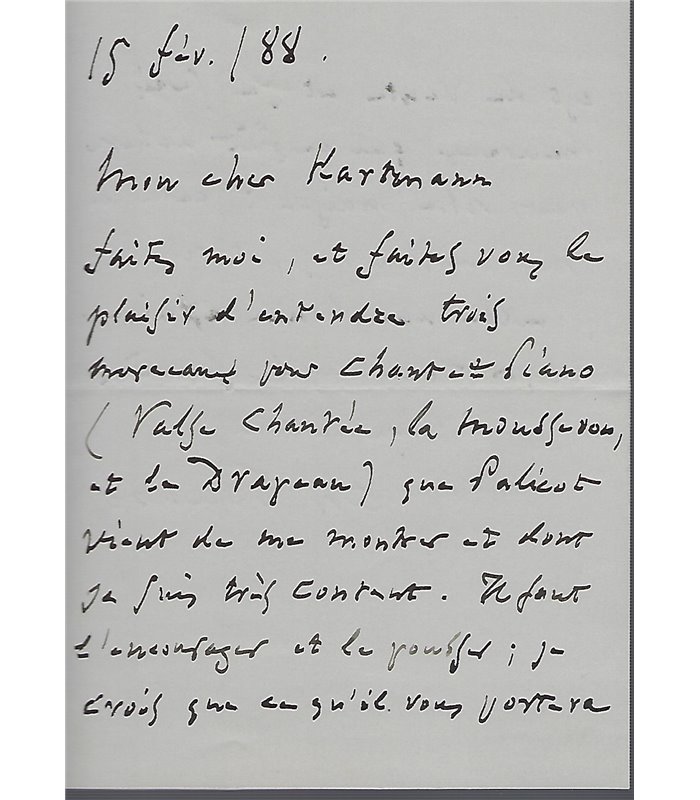 15 fév. /88.
Mon cher Hartmann
faites moi, et faites vous le
plaisir d'entendre trois
morceaux pour Chant et Piano
(Valse Chantée, la
et le Drapeau) que Palicot
vient de me montrer et dont
je suis très content. Il faut
l'encourager et le pousser ; je
crois que ce qu'il vous portera